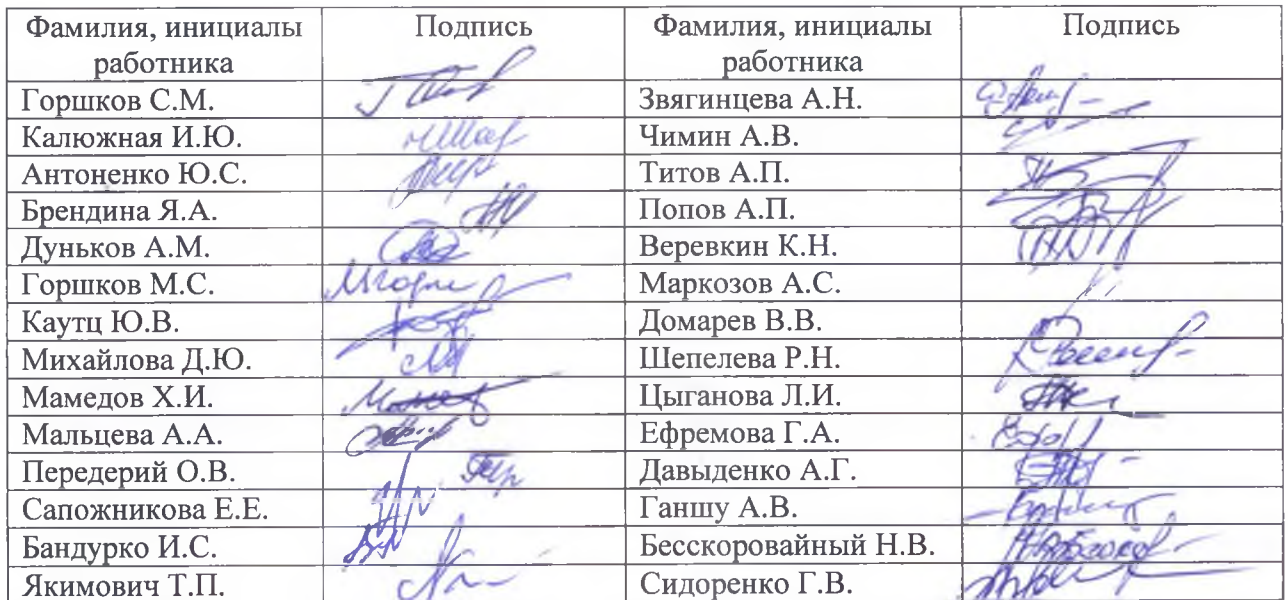 Фамилия, инициалы работника Подпись Фамилия, инициалы работника Подпись
Горшков С.М. Звягинцева А.Н.
Калюжная И.Ю. Чимин А.В.
Антоненко Ю.С. Титов А.П.
Брендина Я.А. Попов А.П.
Дуньков А.М. Веревкин К.Н.
Горшков М.С. Маркозов А.С.
Каутц Ю.В. Домарев В.В.
Михайлова Д.Ю. Шепелева Р.Н.
Мамедов Х.И. Цыганова Л.И.
Мальцева А.А. Ефремова Г.А.
Передерий О.В. Давыденко А.Г.
Сапожникова Е.Е. Ганшу А.В.
Бандурко И.С. Бесскоровайный Н.В.
Якимович Т.П. Сидоренко Г.В.